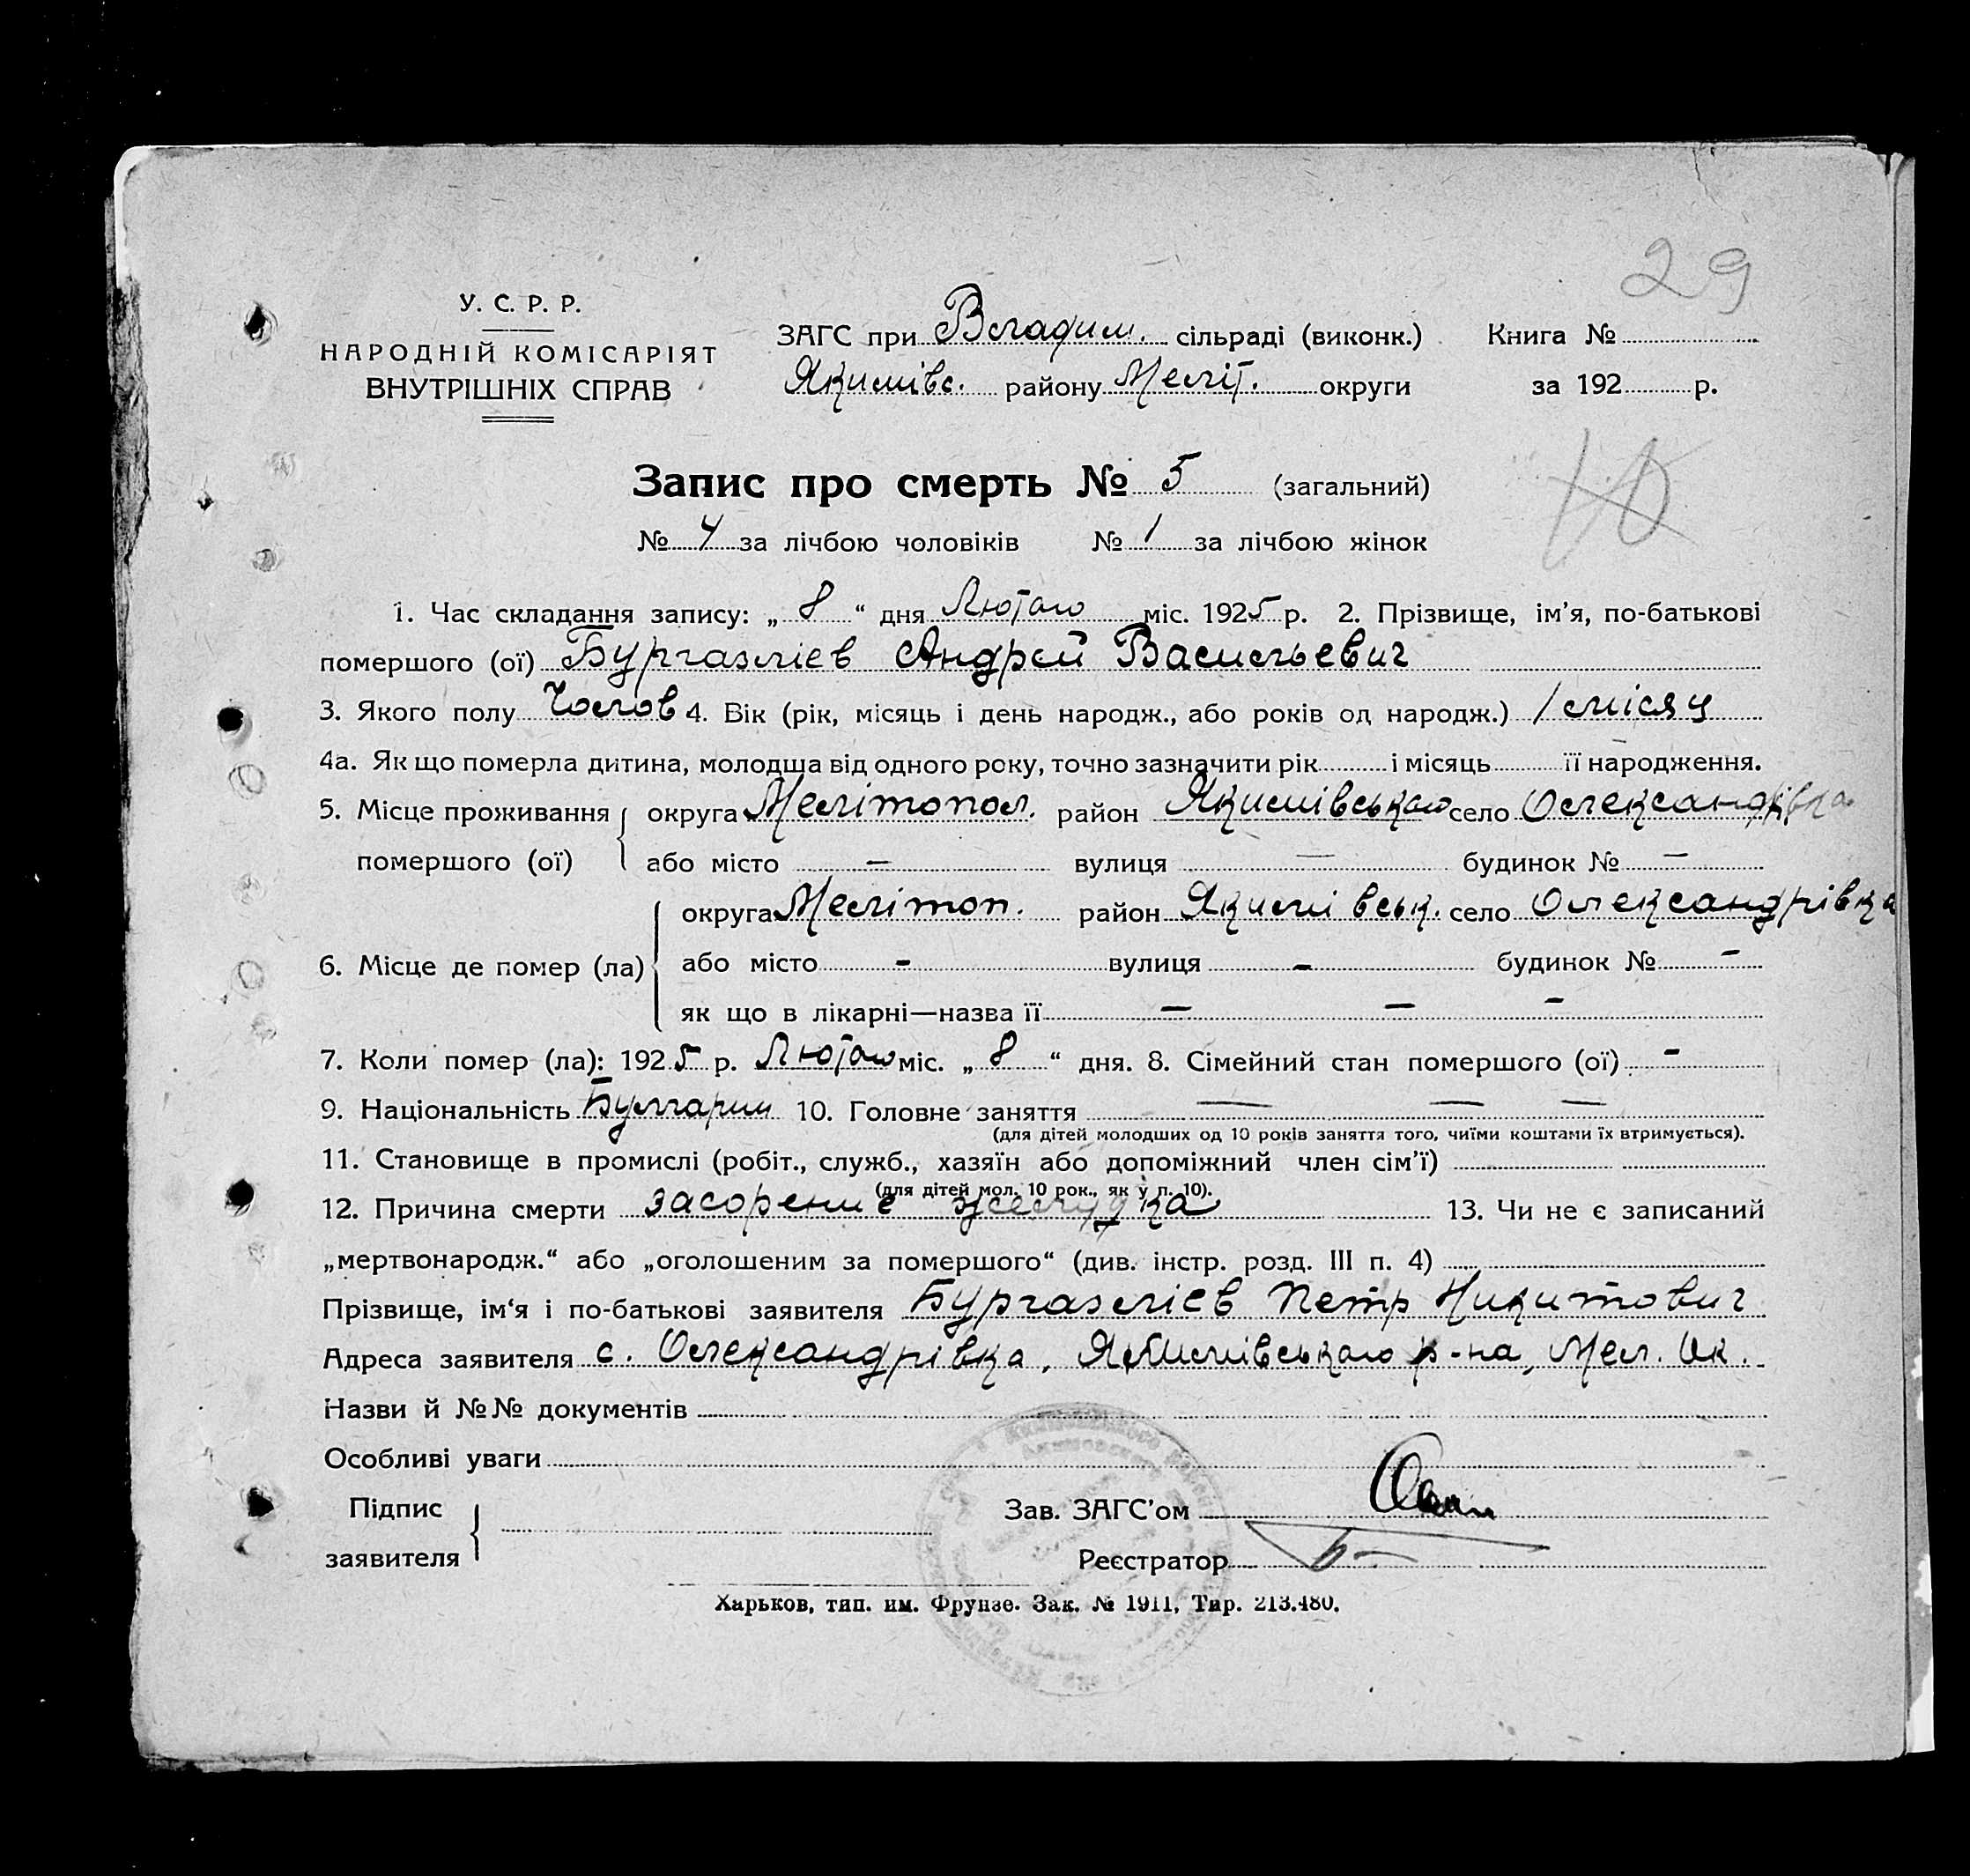 29
У. С. Р. Р.
НАРОДНІЙ КОМІСАРІЯТ
ВНУТРІШНІХ СПРАВ
ЗАГС при Владим. сільраді (виконк.)
Якимівс. району Меліт. округи
Книга №
за 192 р.
Запис про смерть № 5 (загальний)
10
№ 4 за лічбою чоловіків № 1 за лічбою жінок
1. Час складання запису: „ 8 “ дня Лютого міс. 1925 р. 2. Прізвище, ім’я, по-батькові
помершого (ої) Бургазлієв Андрей Васильевич
3. Якого полу Чолов 4. Вік (рік, місяць і день народж., або років од народж.) 1 місяц
4а. Як що померла дитина, молодша від одного року, точно зазначити рік і місяць її народження.
5. Місце проживання округа Мелітопол. район Якимівського село Олександрівка
помершого (ої) або місто — вулиця — будинок № —
округа Мелітоп. район Якимівськ. село Олександрівка
6. Місце де помер (ла) або місто - вулиця - будинок № -
як що в лікарні—назва її — — -
7. Коли помер (ла): 1925 р. Лютого міс. „ 8 “ дня. 8. Сімейний стан помершого (ої) -
9. Національність Булгарин 10. Головне заняття — — —
(для дітей молодших од 10 років заняття того, чиїми коштами їх втримується).
11. Становище в промислі (робіт., служб., хазяїн або допоміжний член сім’ї)
(для дітей мол. 10 рок., як у п. 10).
12. Причина смерти засорение желудка 13. Чи не є записаний
„мертвонародж.“ або „оголошеним за помершого“ (див. інстр. розд. III п. 4)
Прізвище, ім‘я і по-батькові заявителя Бургазлієв Петр Никитович
Адреса заявителя с. Олександрівка, Якимівського р-на, Мел. Ок.
Назви й №№ документів
Особливі уваги
Підпис
заявителя
Зав. ЗАГС’ом
Реєстратор
Харьков, тип. им. Фрунзе. Зак. № 1911, Тир. 213.480.